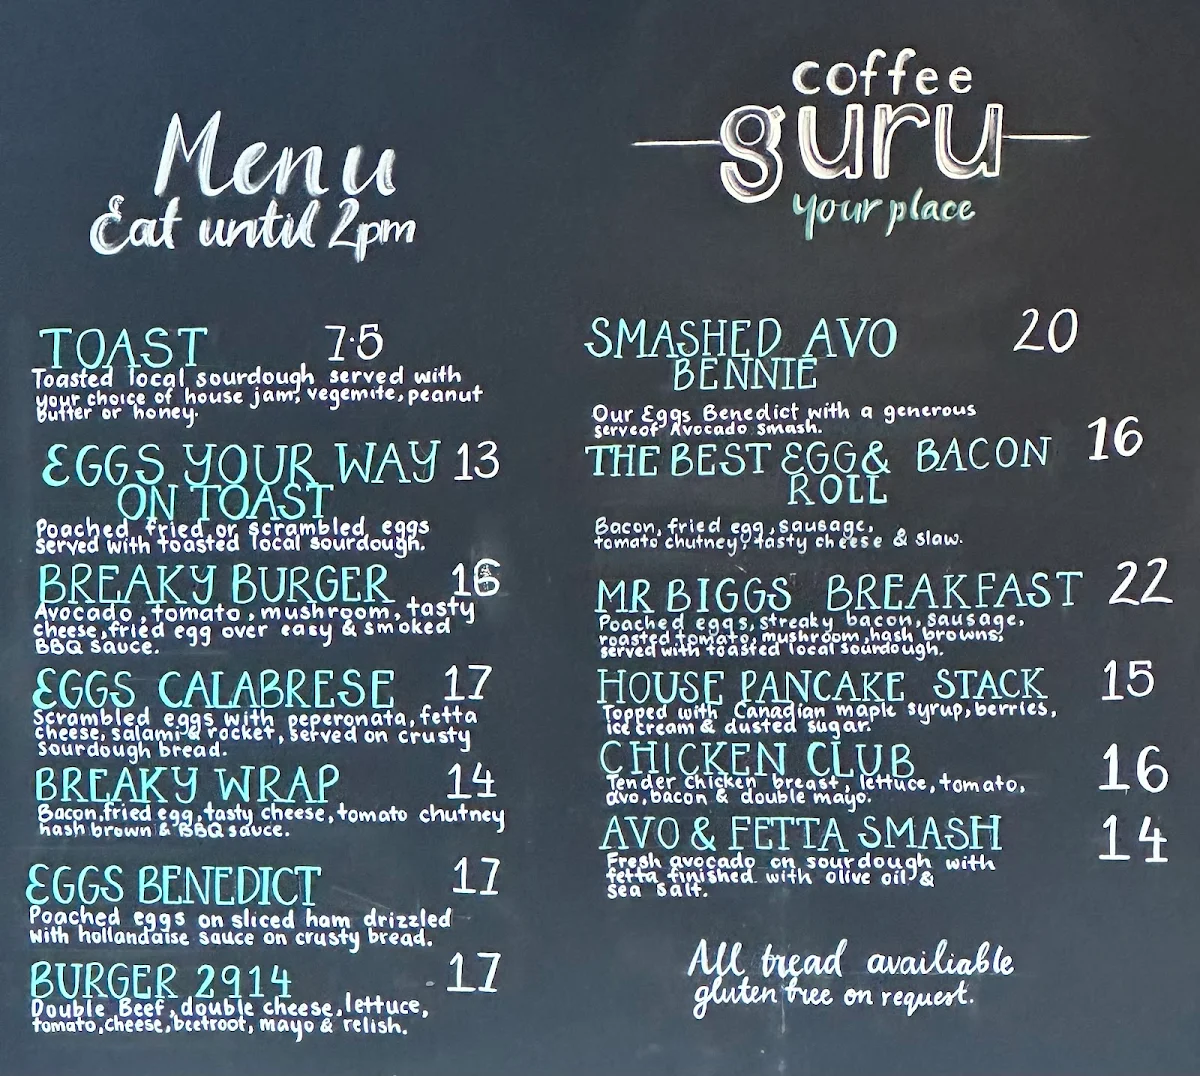 Menu
Eat until 2pm
TOAST 7.5
Toasted local sourdough served with
your choice of house jam, vegemite, peanut
butter or honey.
EGGS YOUR WAY 13
ON TOAST
Poached, fried or scrambled eggs
served with toasted local sourdough.
BREAKY BURGER 16
Avocado, tomato, mushroom, tasty
cheese, fried egg over easy & smoked
BBQ sauce.
EGGS CALABRESE 17
Scrambled eggs with peperonata, fetta
cheese, salami & rocket, served on crusty
sourdough bread.
BREAKY WRAP 14
Bacon, fried egg, tasty cheese, tomato chutney
hash brown & BBQ sauce.
EGGS BENEDICT 17
Poached eggs on sliced ham drizzled
with hollandaise sauce on crusty bread.
BURGER 2914 17
Double Beef, double cheese, lettuce,
tomato, cheese, beetroot, mayo & relish.
coffee
guru
your place
SMASHED AVO 20
BENNIE
Our Eggs Benedict with a generous
serve of Avocado smash.
THE BEST EGG & BACON 16
ROLL
Bacon, fried egg, sausage,
tomato chutney, tasty cheese & slaw.
MR BIGGS BREAKFAST 22
Poached eggs, streaky bacon, sausage,
roasted tomato, mushroom, hash browns,
served with toasted local sourdough.
HOUSE PANCAKE STACK 15
Topped with Canadian maple syrup, berries,
ice cream & dusted sugar.
CHICKEN CLUB 16
Tender chicken breast, lettuce, tomato,
avo, bacon & double mayo.
AVO & FETTA SMASH 14
Fresh avocado on sourdough with
fetta finished with olive oil &
sea salt.
All bread availiable
gluten free on request.